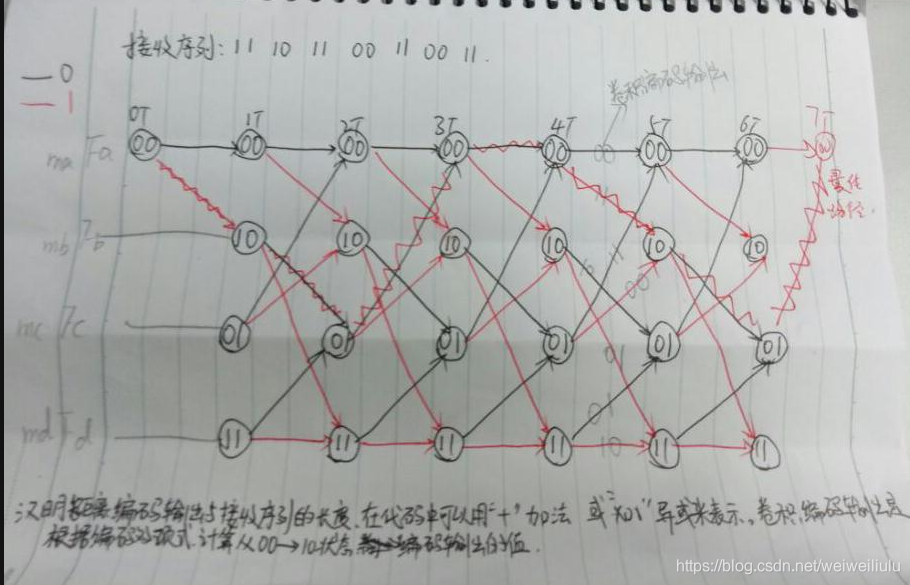 接收序列: 11 10 11 00 11 00 11.
卷积编码输出
0
1
0T 1T 2T 3T 4T 5T 6T 7T
ma Fa 00 00 00 00 00 00 00 00 00
最佳
路径.
mb Fb 10 10 10 10 10 10
11
00
mc Fc 01 01 01 01 01 01
01
01
md Fd 11 11 11 11 10 11 11
汉明距离 编码输出与接收序列的长度. 在代码中可以用"+"加法 或"xor"异或来表示. 卷积编码输出是
根据编码多项式 计算从00→10状态 编码输出的值.
https://blog.csdn.net/weiweiliulu